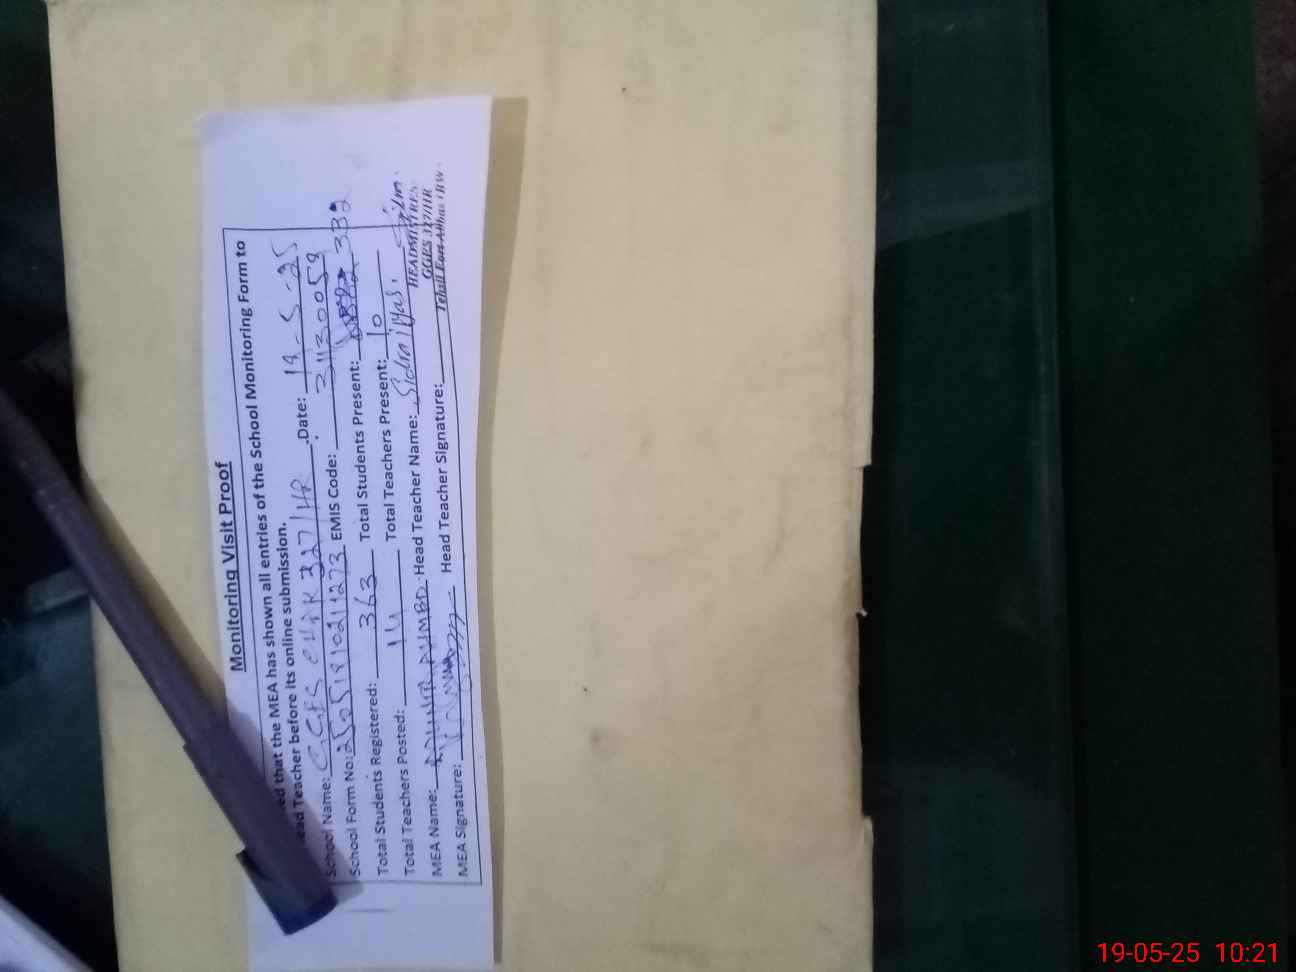 Monitoring Visit Proof
ed that the MEA has shown all entries of the School Monitoring Form to
ead Teacher before its online submission.
School Name: GGES CHAK 327/HR Date: 19-5-25
School Form No: EMIS Code: 31130059
Total Students Registered: 363 Total Students Present: 332
Total Teachers Posted: 14 Total Teachers Present: 10
MEA Name: Head Teacher Name: Sidra ilyas.
MEA Signature: Head Teacher Signature:
HEADMISTRES
GGES 327/HR
Tehsil Fort Abbas (BW
19-05-25 10:21